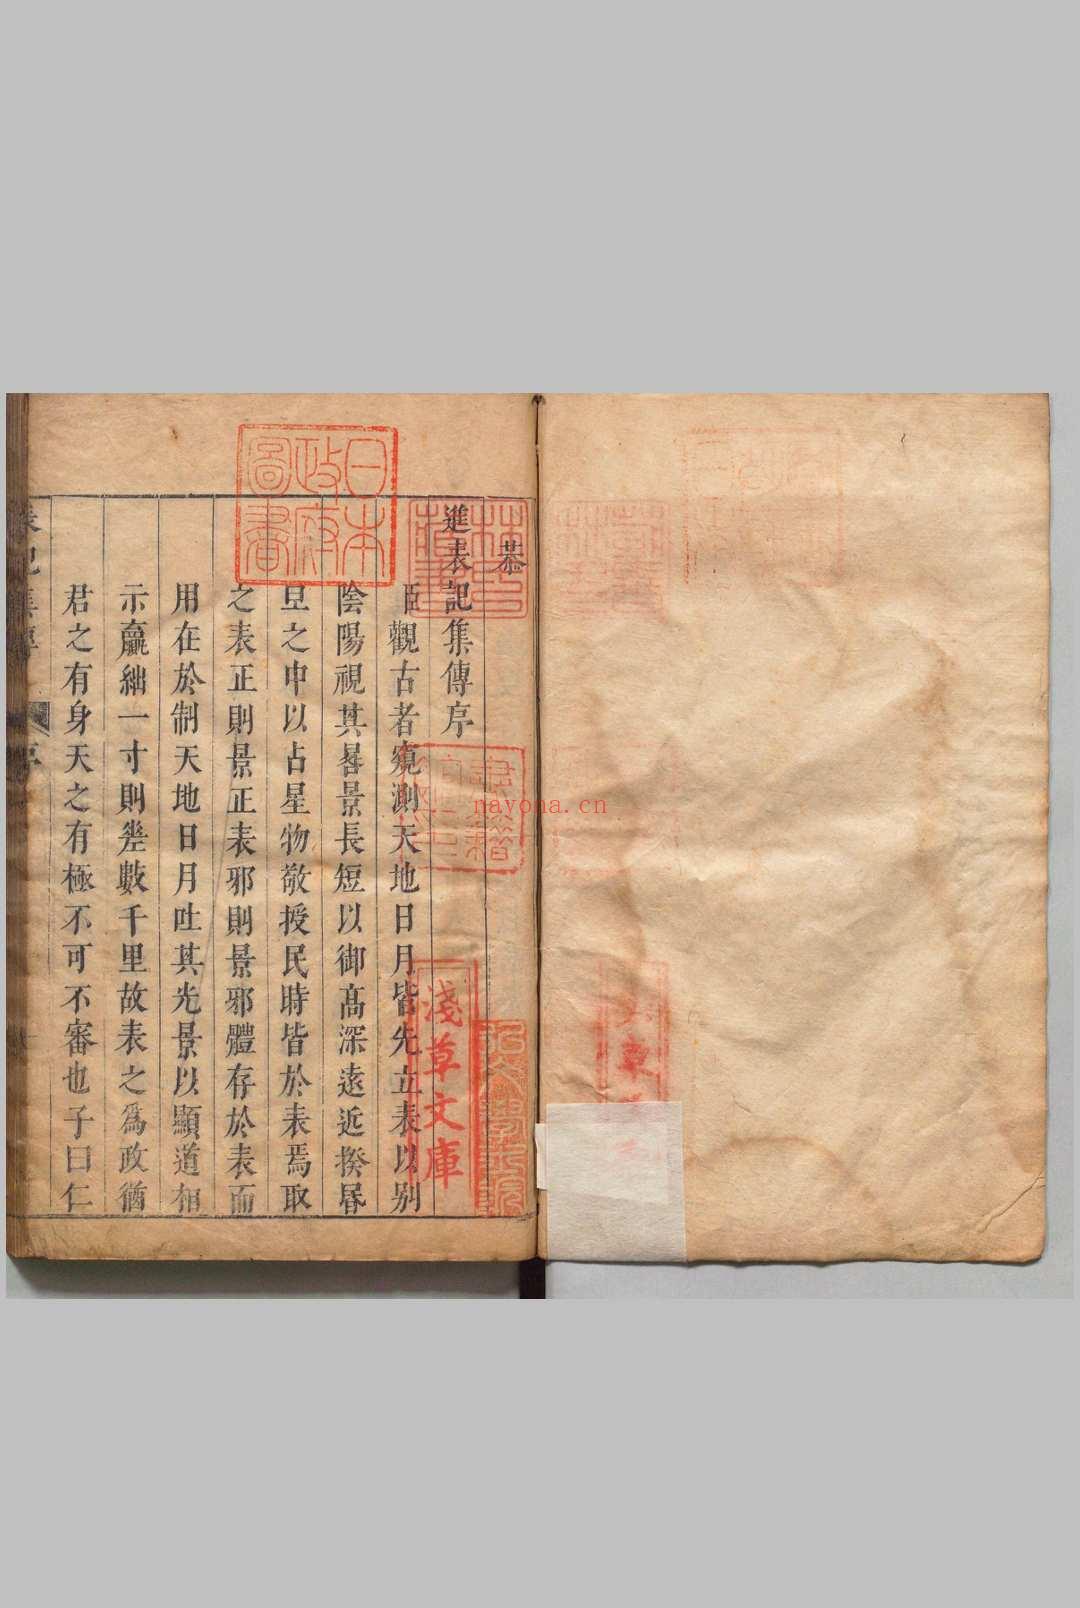 恭
進表記集傳序
臣觀古者窺測天地日月皆先立表以別
陰陽視其晷景長短以御高深遠近揆昏
旦之中以占星物敬授民時皆於表焉取
之表正則景正表邪則景邪體存於表而
用在於制天地日月吐其光景以顯道相
示贏絀一寸則差數千里故表之為政猶
君之有身天之有極不可不審也子曰仁
日本
政府
圖書
林氏
藏書
淺草文庫
nayona.cn